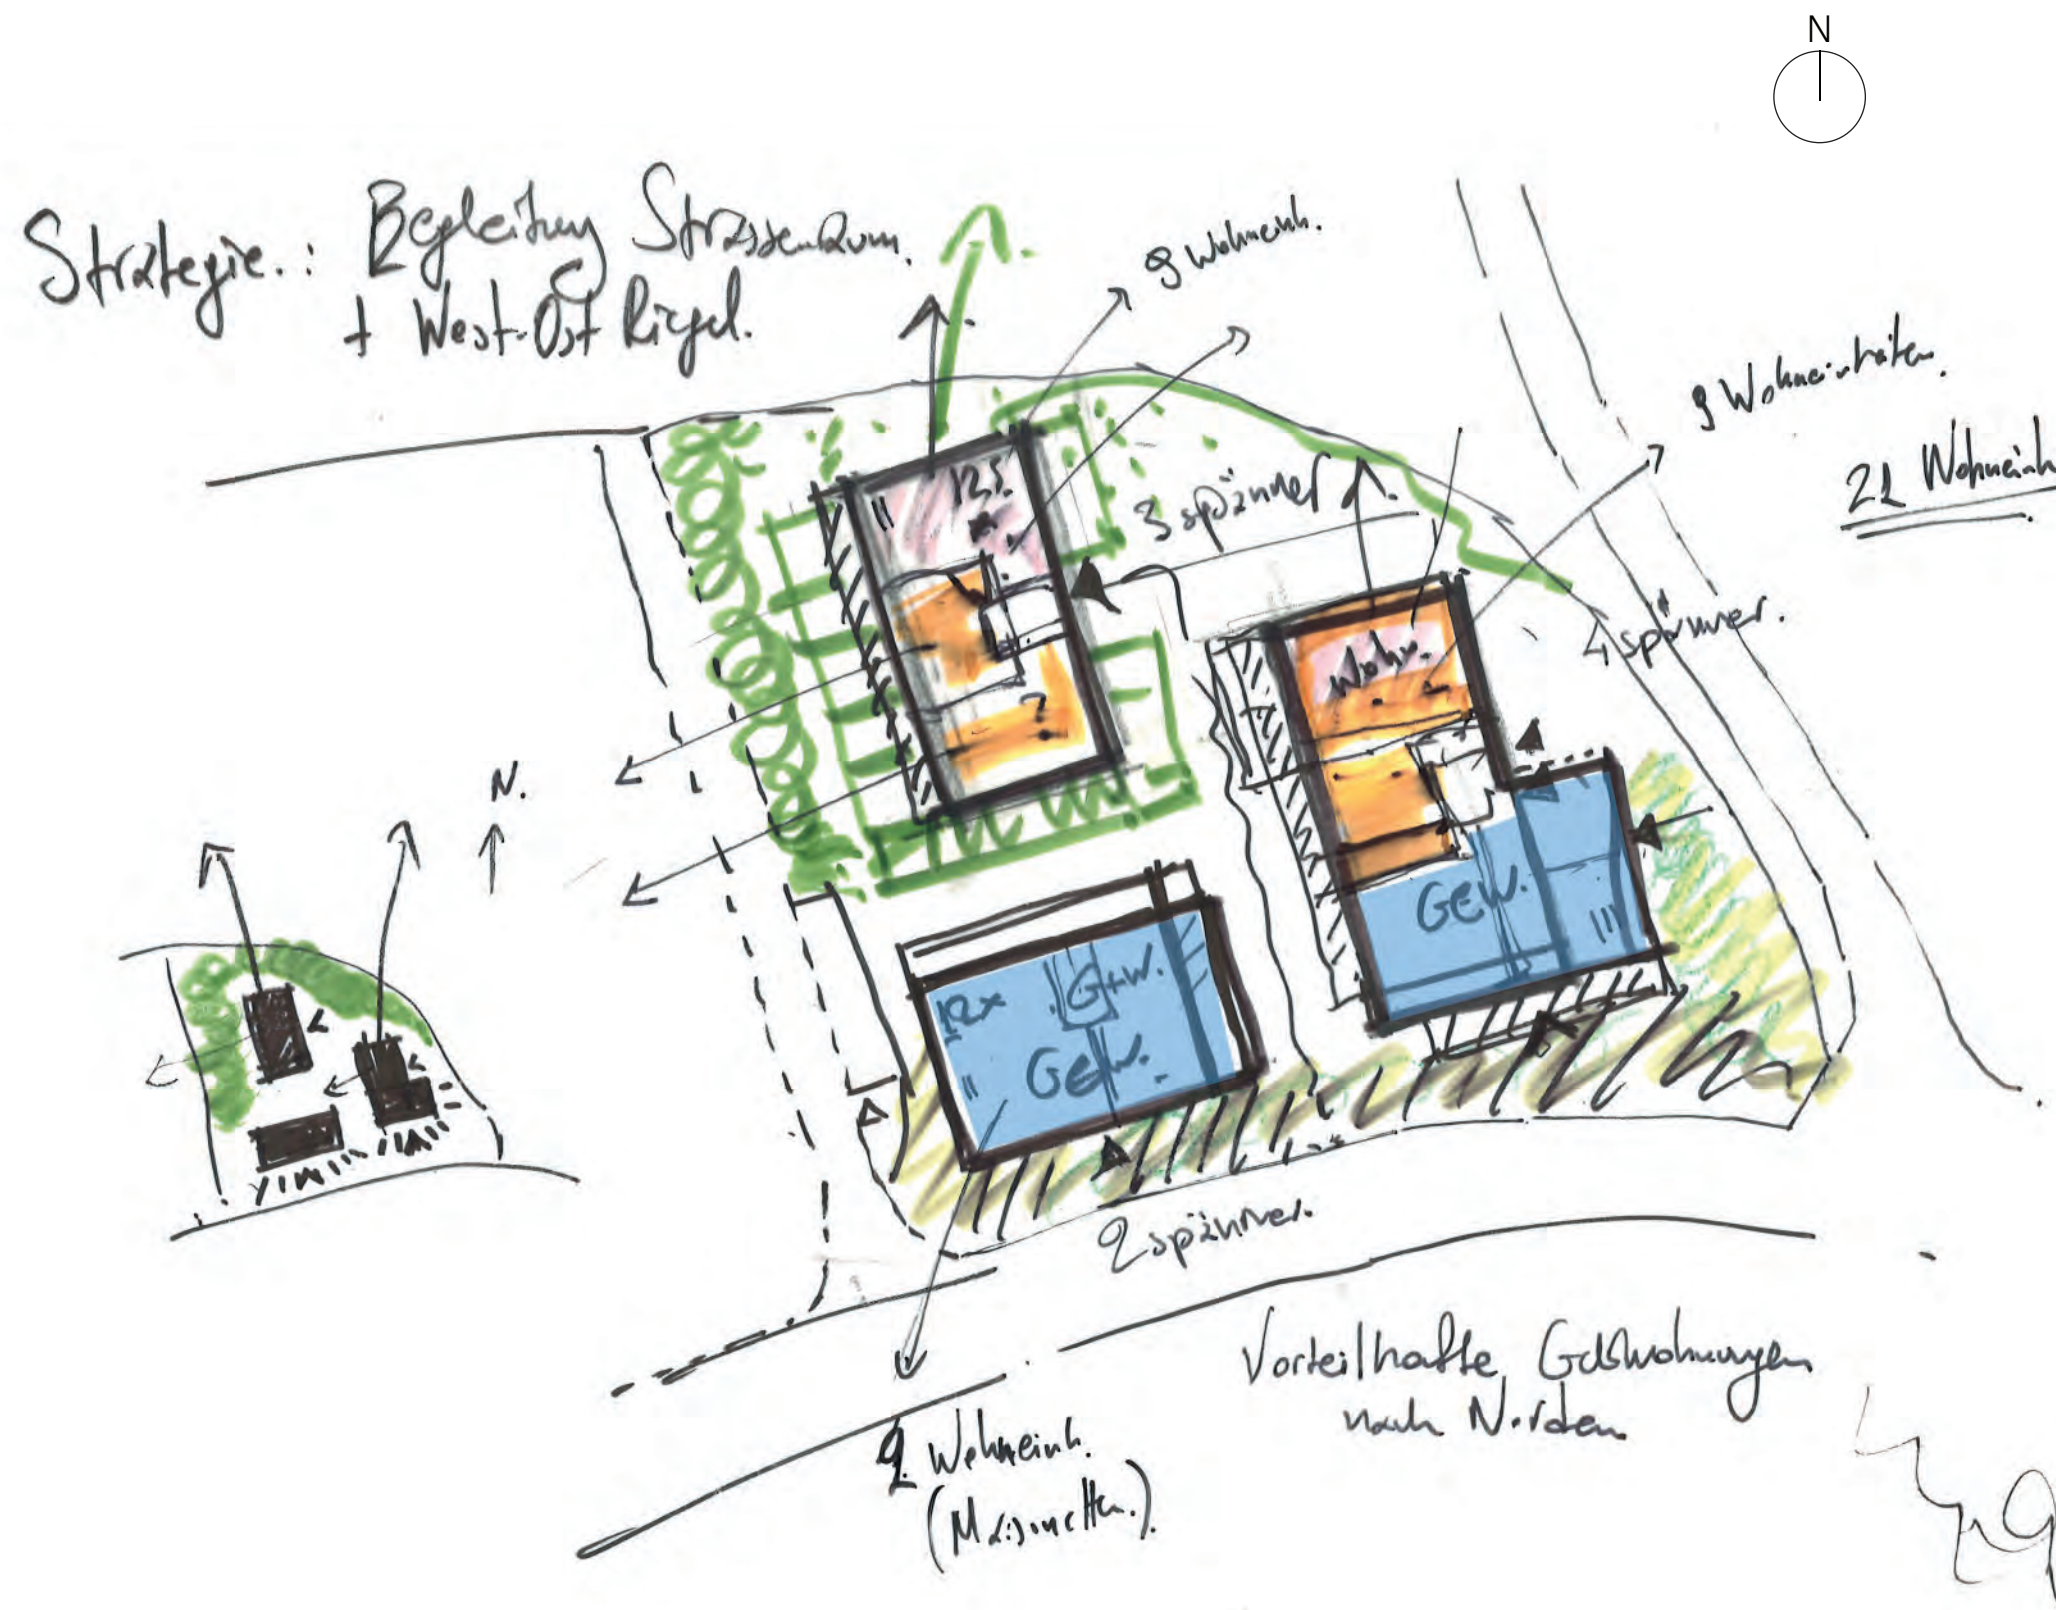 N
Strategie.: Begleitung Strassenraum.
+ West-Ost Riegel.
9 Wohneinh.
9 Wohneinheiten.
21 Wohneinh
3 spänner
12 S.
?
Wohn.
4 spänner.
N.
GEW.
12x
G+W.
GEW.
2 spänner.
Vorteilhafte
nach Norden
2 Wohneinh.
(Maisonetten.)